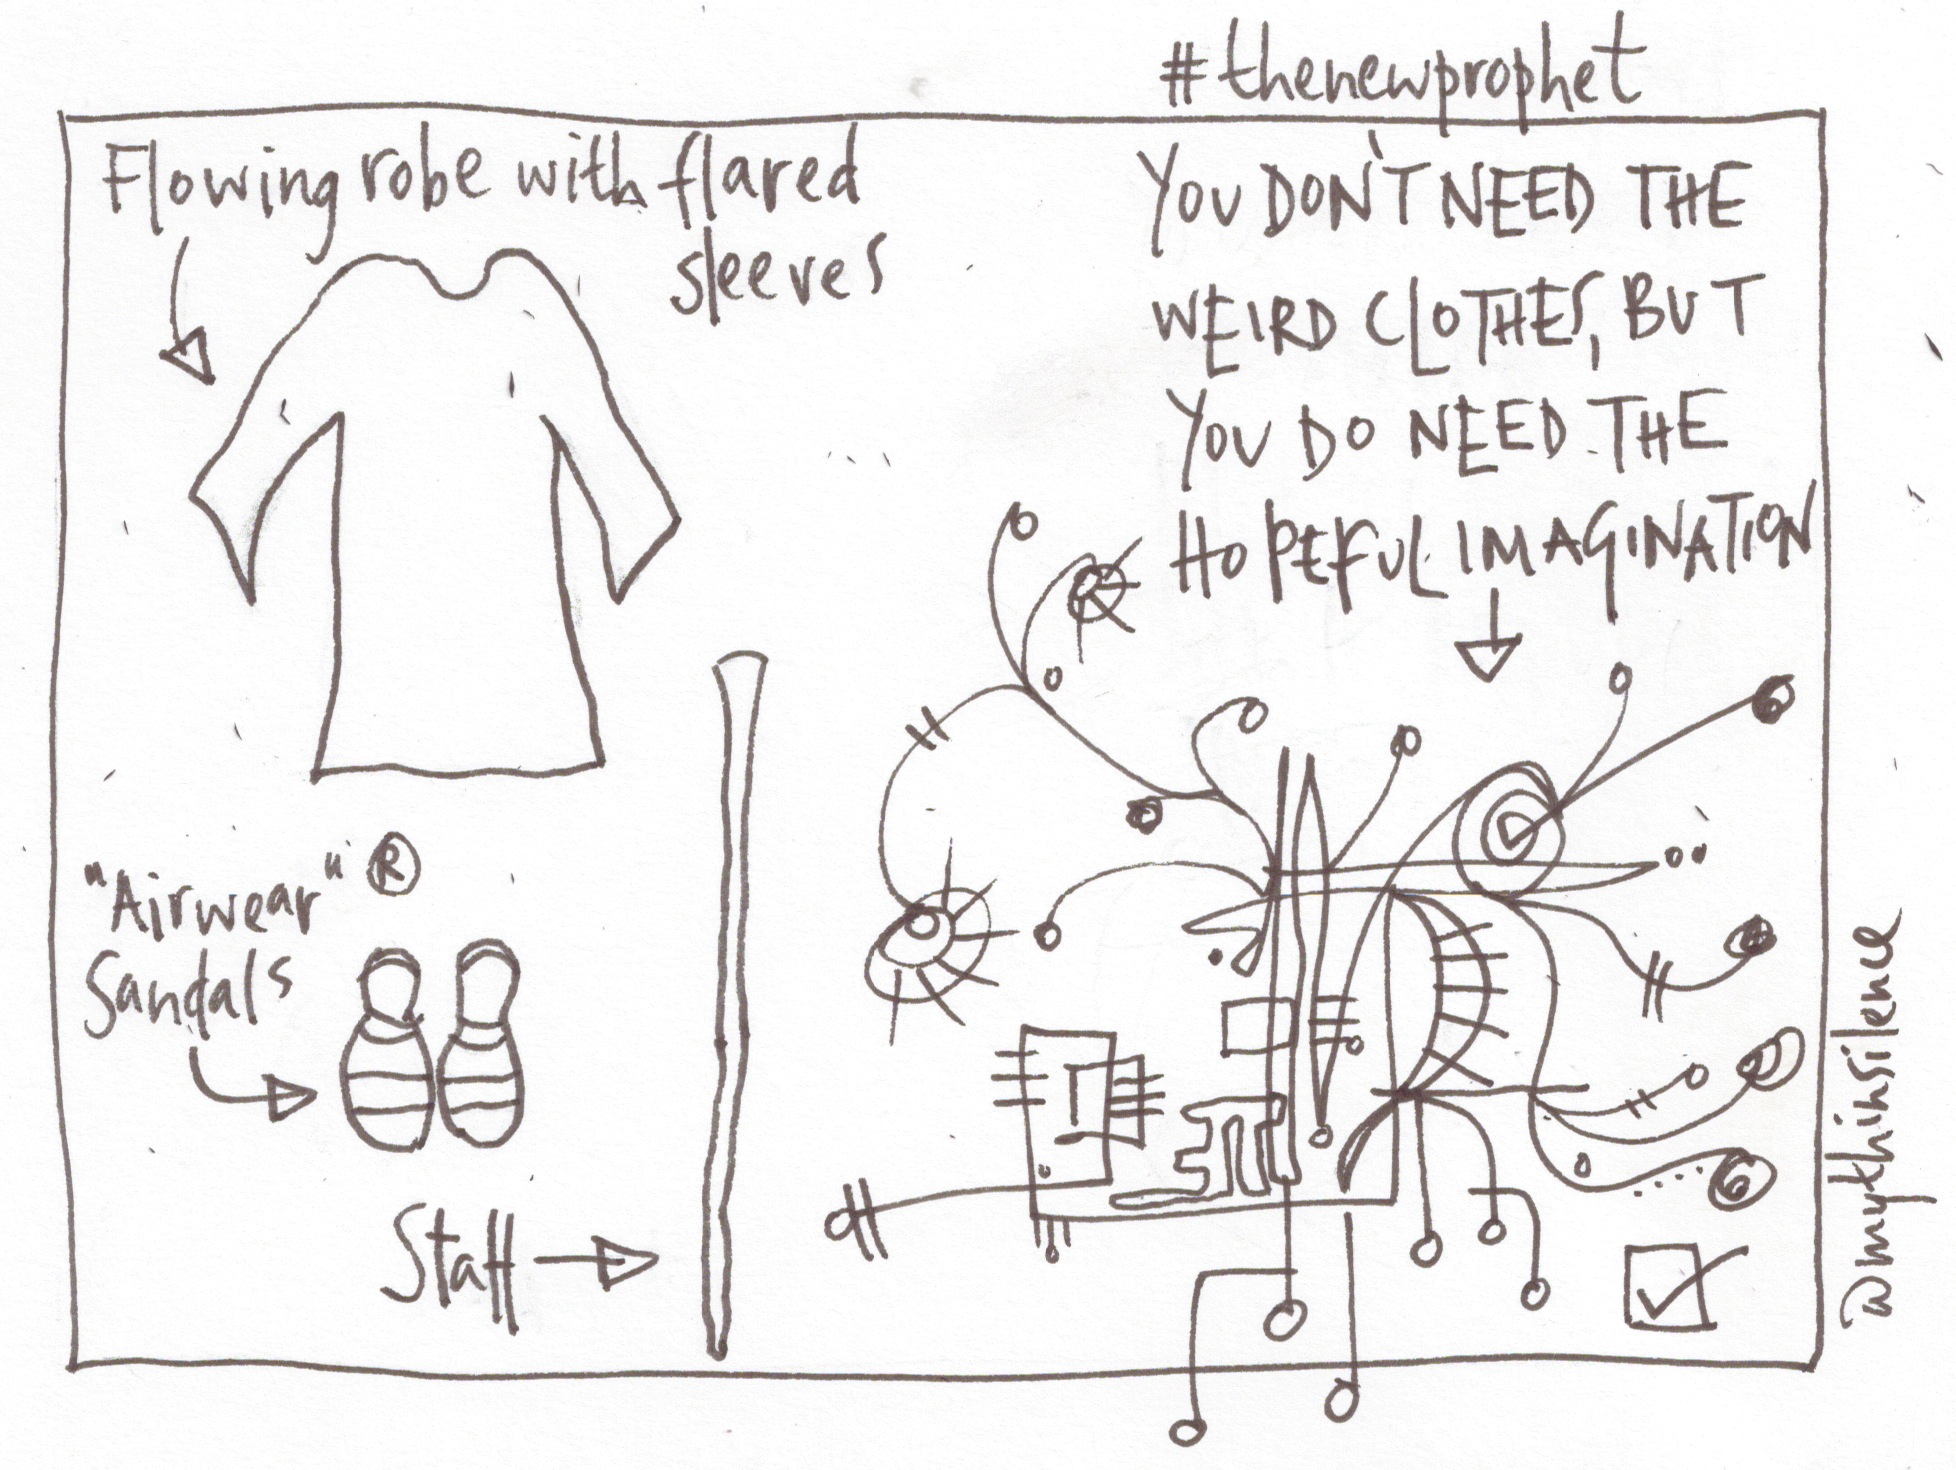 #thenewprophet
Flowing robe with flared
sleeves
YOU DON'T NEED THE
WEIRD CLOTHES, BUT
YOU DO NEED THE
HOPEFUL IMAGINATION
"Airwear" ®
Sandals
Staff
@mythinsilence